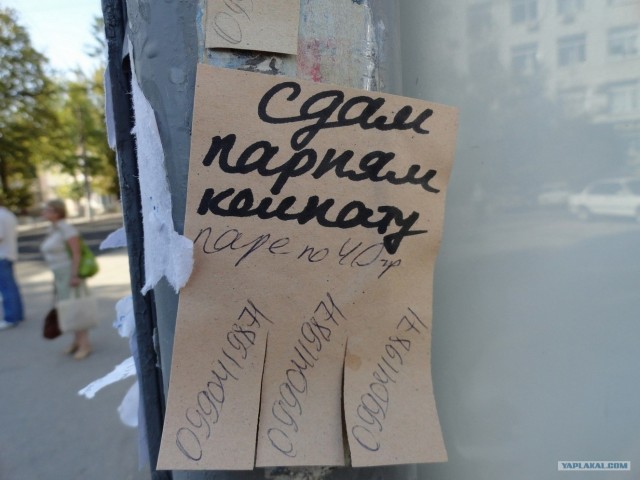 099
сдам
парням
комнату
паре по 40 гр
0990419871
0990419871
0990419871
YAPLAKAL.COM